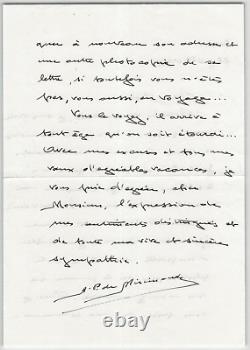 que à nouveau son adresse et
une autre photocopie de sa
lettre, si toutefois vous n'êtes
pas, vous aussi, en voyage...
Vous le voyez, il arrive à
tout âge qu'on soit étourdi...
Avec mes excuses et tous mes
vœux d'agréables vacances, je
vous prie d'agréer, cher
Monsieur, l'expression de
mes sentiments distingués et
de toute ma vive et sincère
sympathie.